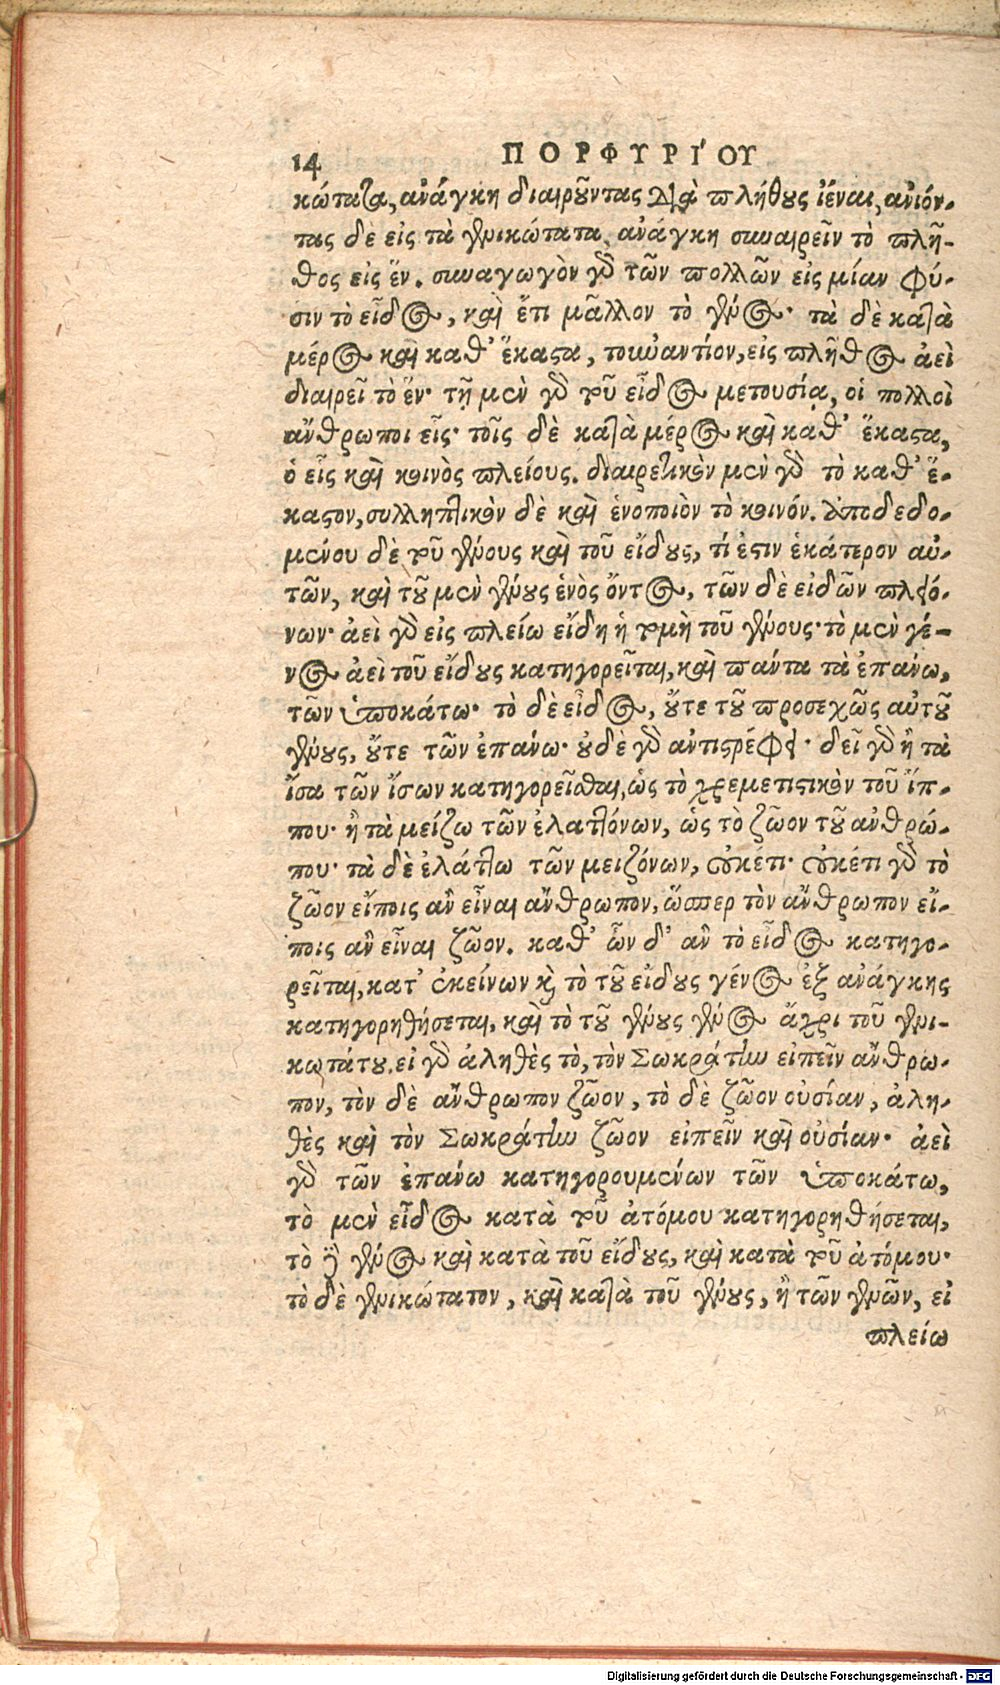 14 ΠΟΡΦΥΡΙ΄ΟΥ
κώτατα, ἀνάγκη διαιροῦντας διὰ πλήθους ἰέναι, ἀνιόν-
τας δὲ εἰς τὰ γενικώτατα, ἀνάγκη συναιρεῖν τὸ πλῆ-
θος εἰς ἕν. συναγωγὸν γὰρ τῶν πολλῶν εἰς μίαν φύ-
σιν τὸ εἶδος, καὶ ἔτι μᾶλλον τὸ γένος· τὰ δὲ κατὰ
μέρος καὶ καθ' ἕκαστα, τοὐναντίον, εἰς πλῆθος ἀεὶ
διαιρεῖ τὸ ἕν· τῇ μὲν γὰρ τοῦ εἶδος μετουσίᾳ, οἱ πολλοὶ
ἄνθρωποι εἷς· τοῖς δὲ κατὰ μέρος καὶ καθ' ἕκαστα,
ὁ εἷς καὶ κοινὸς πλείους. διαιρετικὸν μὲν γὰρ τὸ καθ' ἕ-
καστον, συλληπτικὸν δὲ καὶ ἑνοποιὸν τὸ κοινόν. ἀποδεδο-
μένου δὲ τοῦ γένους καὶ τοῦ εἴδους, τί ἐστιν ἑκάτερον αὐ-
τῶν, καὶ τοῦ μὲν γένους ἑνὸς ὄντος, τῶν δὲ εἰδῶν πλειό-
νων· ἀεὶ γὰρ εἰς πλείω εἴδη ἡ τομὴ τοῦ γένους· τὸ μὲν γέ-
νος ἀεὶ τοῦ εἴδους κατηγορεῖται, καὶ πάντα τὰ ἐπάνω,
τῶν ὑποκάτω· τὸ δὲ εἶδος, οὔτε τοῦ προσεχῶς αὐτοῦ
γένους, οὔτε τῶν ἐπάνω· οὐδὲ γὰρ ἀντιστρέφει· δεῖ γὰρ ἢ τὰ
ἴσα τῶν ἴσων κατηγορεῖσθαι, ὡς τὸ χρεμετιστικὸν τοῦ ἵπ-
που· ἢ τὰ μείζω τῶν ἐλαττόνων, ὡς τὸ ζῶον τοῦ ἀνθρώ-
που· τὰ δὲ ἐλάττω τῶν μειζόνων, οὐκέτι· οὐκέτι γὰρ τὸ
ζῶον εἴποις ἂν εἶναι ἄνθρωπον, ὥσπερ τὸν ἄνθρωπον εἴ-
ποις ἂν εἶναι ζῶον. καθ' ὧν δ' ἂν τὸ εἶδος κατηγο-
ρεῖται, κατ' ἐκείνων καὶ τὸ τοῦ εἴδους γένος ἐξ ἀνάγκης
κατηγορηθήσεται, καὶ τὸ τοῦ γένους γένος ἄχρι τοῦ γενι-
κωτάτου. εἰ γὰρ ἀληθὲς τὸ, τὸν Σωκράτην εἰπεῖν ἄνθρω-
πον, τὸν δὲ ἄνθρωπον ζῶον, τὸ δὲ ζῶον οὐσίαν, ἀλη-
θὲς καὶ τὸν Σωκράτην ζῶον εἰπεῖν καὶ οὐσίαν· ἀεὶ
γὰρ τῶν ἐπάνω κατηγορουμένων τῶν ὑποκάτω,
τὸ μὲν εἶδος κατὰ τοῦ ἀτόμου κατηγορηθήσεται,
τὸ δὲ γένος καὶ κατὰ τοῦ εἴδους, καὶ κατὰ τοῦ ἀτόμου·
τὸ δὲ γενικώτατον, καὶ κατὰ τοῦ γένους, ἢ τῶν γενῶν, εἰ
πλείω
Digitalisierung gefördert durch die Deutsche Forschungsgemeinschaft - DFG